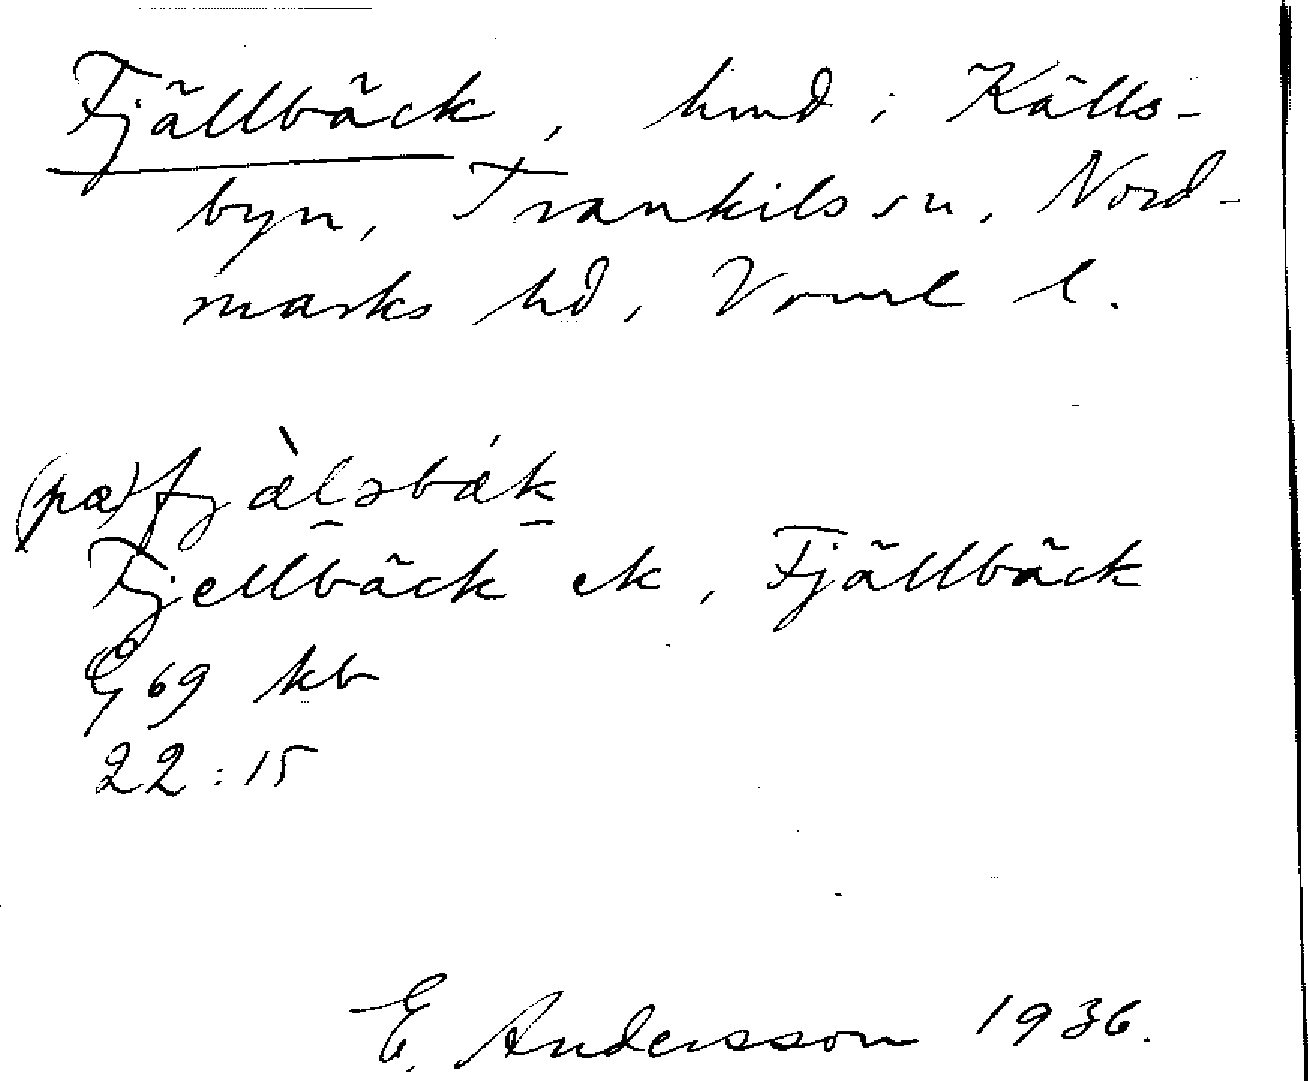 Fjällbäck, hmd i Källs-
byn, Trankils sn, Nord-
marks hd, Vrml l.
(pæ) fjæ̀lsbák
Fjellbäck ek, Fjällbäck
69 kb
22:15
E. Andersson 1936.